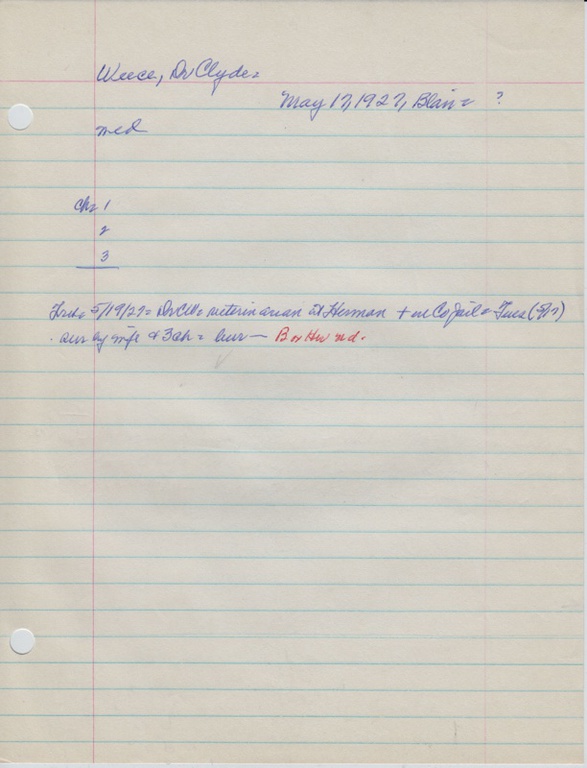 Weece, Dr Clyde=
May 17, 1927, Blair = ?
med
ch= 1
2
3
5/19/27= Dr CW= veterinarian at Herman + in Co jail = Tues (5/17)
sur by wife & 3 ch = bur — B or Hu nd.